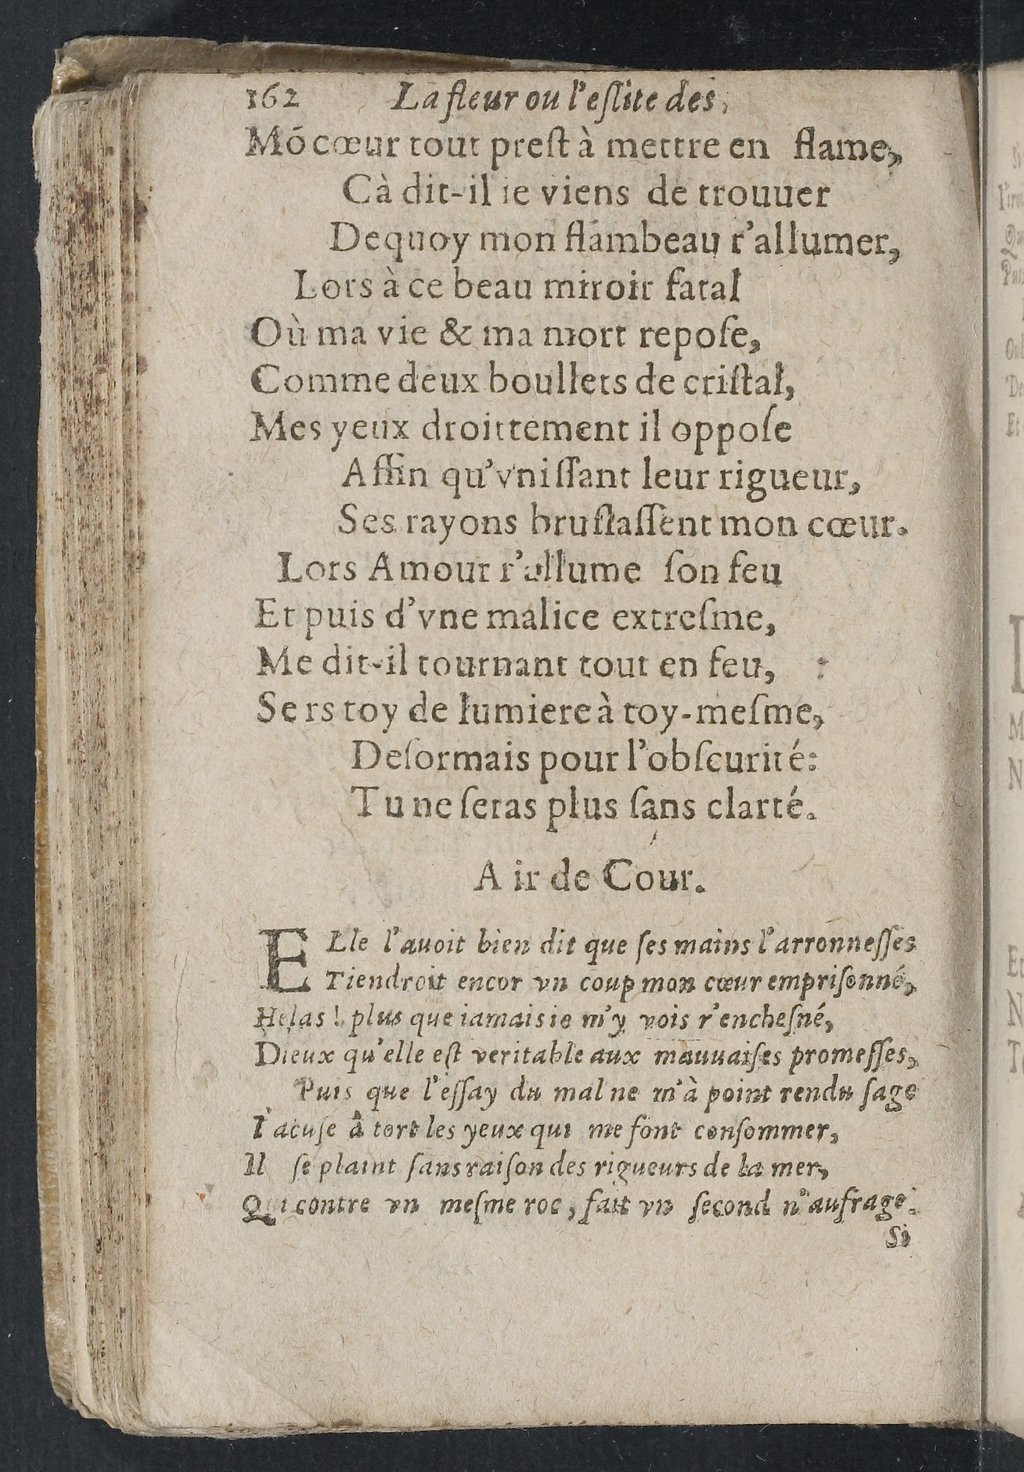 162 La fleur ou l'eſlite des
Mó cœur tout preſt à mettre en flame,
Cà dit-il ie viens de trouuer
Dequoy mon flambeau r'allumer,
Lors à ce beau miroir fatal
Où ma vie & ma mort repoſe,
Comme deux boullets de criſtal,
Mes yeux droittement il oppoſe
Affin qu'vniſſant leur rigueur,
Ses rayons bruſlaſſent mon cœur.
Lors Amour r'allume ſon feu
Et puis d'vne malice extreſme,
Me dit-il tournant tout en feu,
Sers toy de lumiere à toy-meſme,
Deſormais pour l'obſcurité:
Tu ne ſeras plus ſans clarté.
Air de Cour.
ELle l'auoit bien dit que ſes mains l'arronneſſes
Tiendroit encor vn coup mon cœur empriſonné,
Helas! plus que iamais ie m'y vois r'encheſné,
Dieux qu'elle eſt veritable aux mauuaiſes promeſſes,
Puis que l'eſſay du mal ne m'à point rendu ſage
I'acuſe à tort les yeux qui me font conſommer,
Il ſe plaint ſans raiſon des rigueurs de la mer,
Qui contre vn meſme roc, fait vn ſecond n'aufrage.
Si